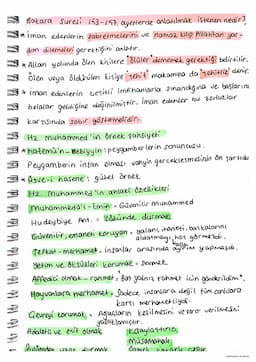 Bakara Suresi 153-157. ayetlerde anlatılmak istenen nedir?
* İman edenlerin sabretmelerini ve namaz kılıp Allahtan yar-
dım dilemeleri gerektiğini anlatır.
* Allah yolunda ölen kişilere "ölüler" dememek gerektiği belirtilir.
Ölen veya öldürülen kişiye "şehit" makamına da "şehitlik" denir.
* İman edenlerin çeşitli imtihanlarla sınandığına ve başlarına
belalar geldiğine değinilmiştir. İman edenler bu zorluklar
karşısında sabır göstermelidir.
Hz. Muhammed'in örnek şahsiyeti
* Hatemü'n-Nebiyyin: peygamberlerin sonuncusu.
Peygamberin insan olması vahyin gerçekleşmesinin ön şartıdır
* Üsve-i hasene: güzel örnek
Hz. Muhammed'in ahlaki özellikleri
Muhammedü'l-Emin: Güvenilir Muhammed
Hudeybiye Ant. : sözünde durmak
Güvenilir, emaneti koruyan: yalanı, ihaneti, başkalarını
aldatmayı hoş görmedi.
Şefkat-merhamet: insanlar arasında ayrım yapmamalı.
Yetim ve öksüzleri korumak:
Affedici olmak - rahmet: Ben yalnız rahmet için gönderildim.
Hayvanlara merhamet: Sadece insanlara değil tüm canlılara
karşı merhametliydi.
Çevreyi korumak: Ağaçların kesilmesini ve zarar verilmesini
yasaklamıştır.
Adaletli ve eşit olmak
Kolaylaştırıcı
Müsamahalı